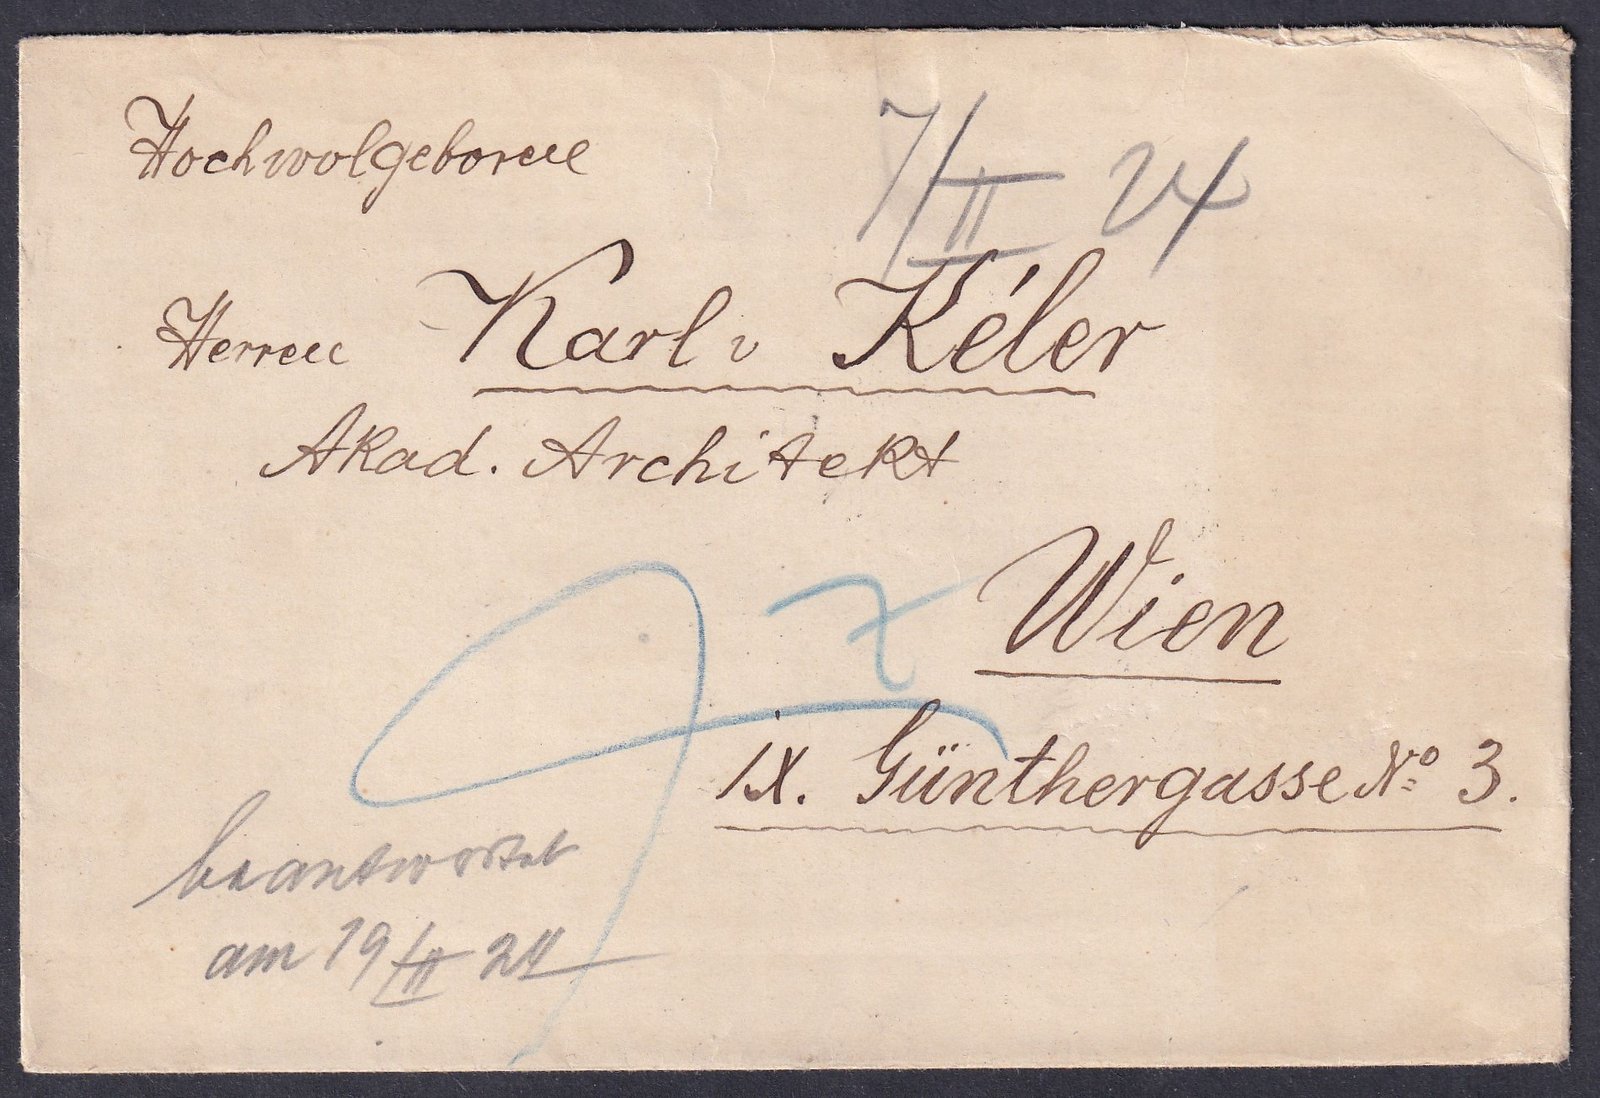 Hochwolgeboren
7/II 24
Herren Karl v Kéler
Akad. Architekt
Wien
IX. Günthergasse No 3.
beantwortet
am 19/II 24